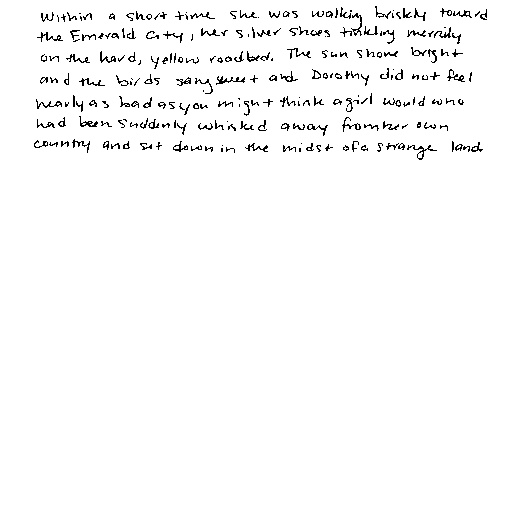 Within a short time she was walking briskly toward
the Emerald City, her silver shoes tinkling merrily
on the hard, yellow roadbed. The sun shone bright
and the birds sang sweet and Dorothy did not feel
nearly as bad as you might think a girl would who
had been suddenly whisked away from her own
country and set down in the midst of a strange land